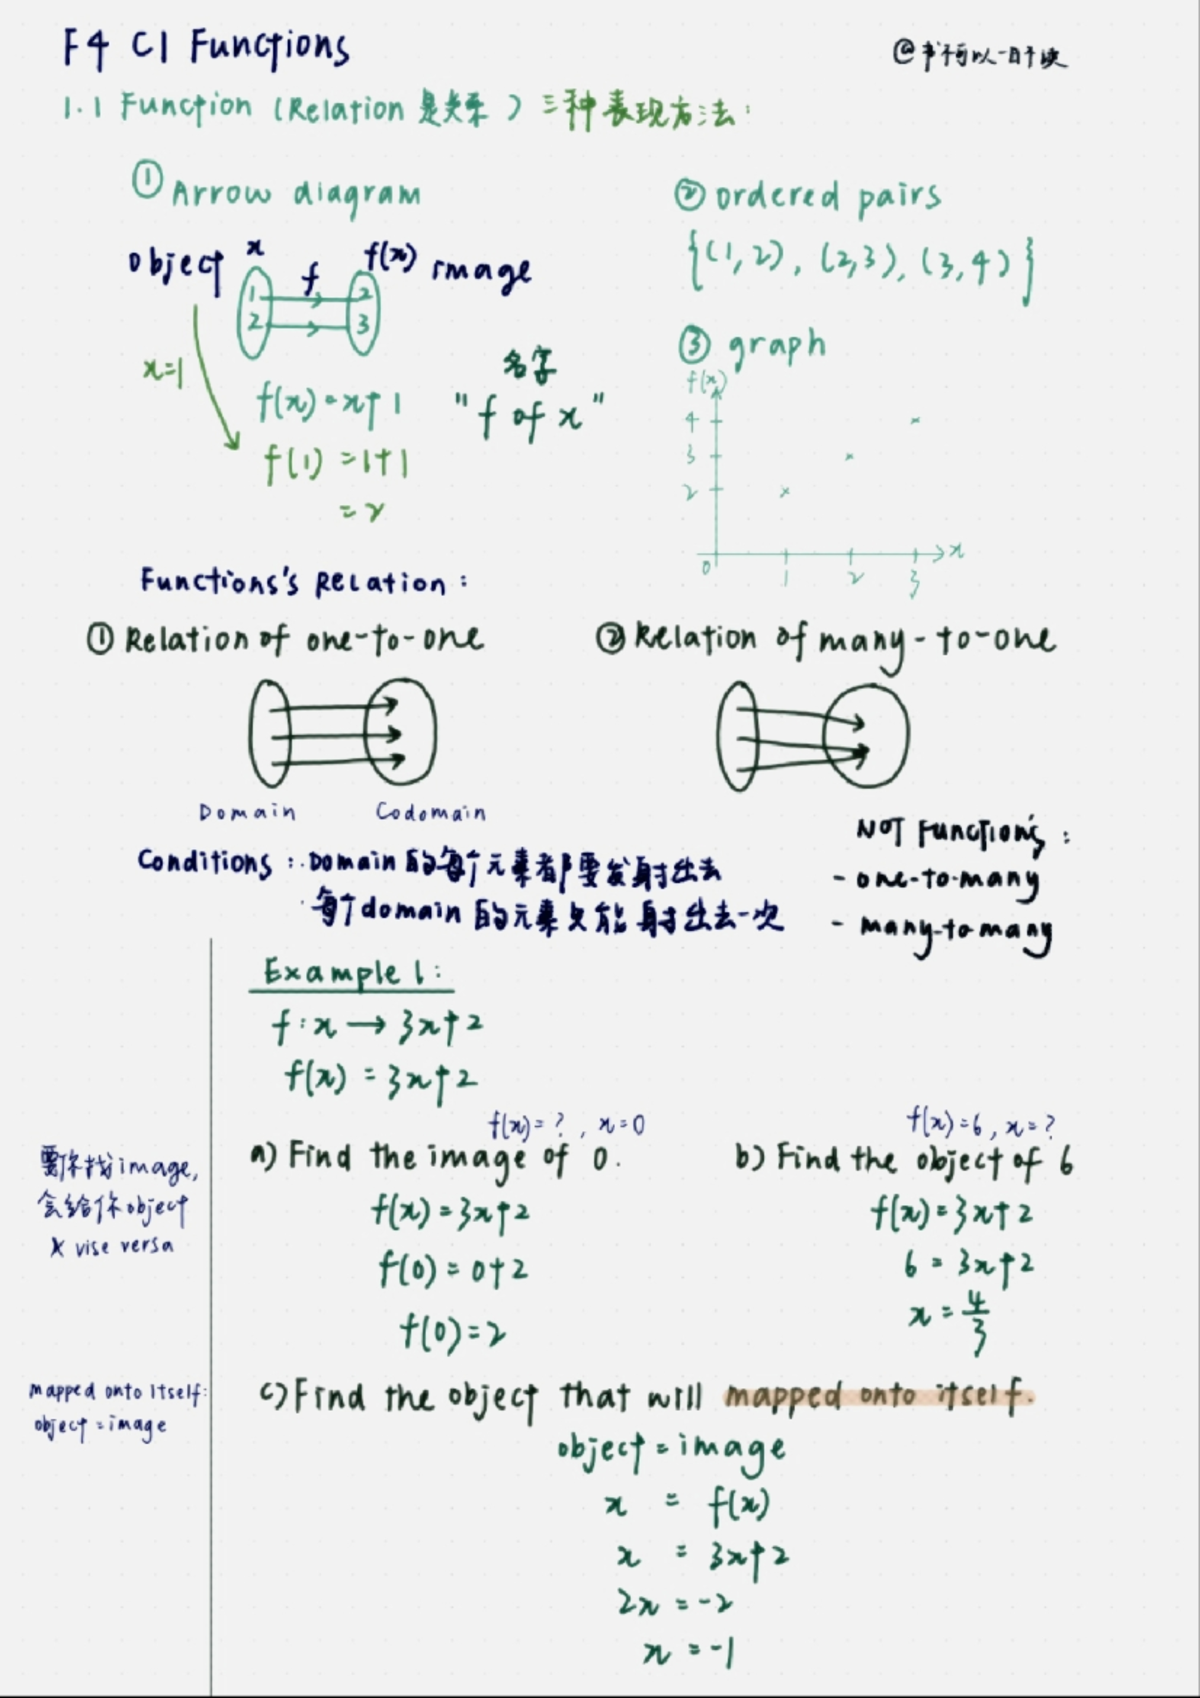 F4 C1 Functions
@书不可以一日不读
1.1 Function (Relation 是关系) 三种表现方法:
① Arrow diagram
object x f f(x) image
1 2
2 3
x=1
f(x)=x+1
f(1)=1+1
=2
名字
"f of x"
② ordered pairs
{(1,2), (2,3), (3,4)}
③ graph
f(x)
4
3
2
0 1 2 3 x
Functions's Relation:
① Relation of one-to-one
Domain Codomain
② Relation of many-to-one
Conditions: · Domain 的每个元素都要发射出去
· 每个domain 的元素只能射出去一次
NOT Function's:
- one-to-many
- many-to-many
Example 1:
f:x → 3x+2
f(x) = 3x+2
要你找image,
会给你object
& vise versa
f(x)=?, x=0
a) Find the image of 0.
f(x)=3x+2
f(0)=0+2
f(0)=2
f(x)=6, x=?
b) Find the object of 6
f(x)=3x+2
6=3x+2
x=4/3
mapped onto itself:
object=image
c) Find the object that will mapped onto itself.
object=image
x = f(x)
x = 3x+2
2x = -2
x = -1